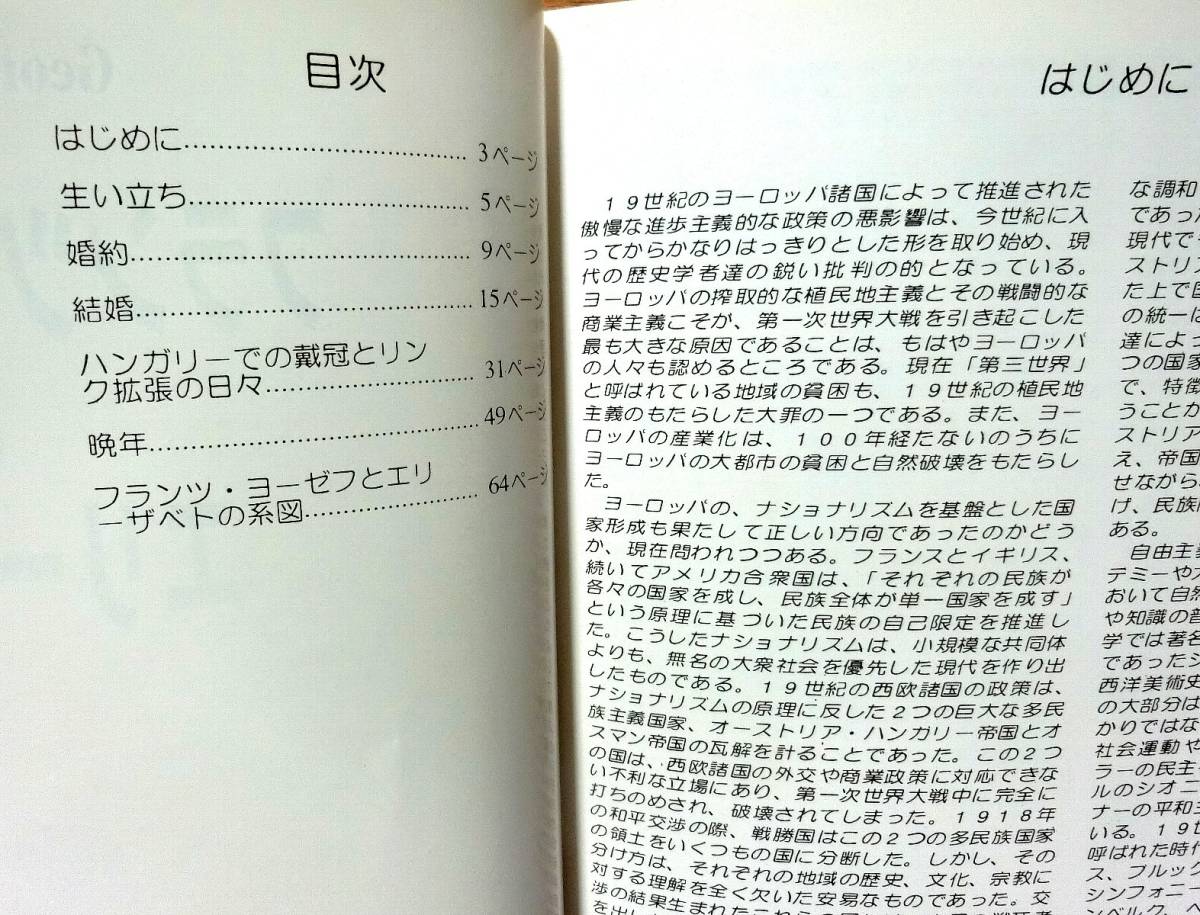 目次
はじめに................................. 3ページ
生い立ち................................. 5ページ
婚約........................................ 9ページ
結婚........................................ 15ページ
ハンガリーでの戴冠とリン
ク拡張の日々........................ 31ページ
晩年....................................... 49ページ
フランツ・ヨーゼフとエリ
ーザベトの系図.................... 64ページ
はじめに
１９世紀のヨーロッパ諸国によって推進された
傲慢な進歩主義的な政策の悪影響は、今世紀に入
ってからかなりはっきりとした形を取り始め、現
代の歴史学者達の鋭い批判の的となっている。
ヨーロッパの搾取的な植民地主義とその戦闘的な
商業主義こそが、第一次世界大戦を引き起こした
最も大きな原因であることは、もはやヨーロッパ
の人々も認めるところである。現在「第三世界」
と呼ばれている地域の貧困も、１９世紀の植民地
主義のもたらした大罪の一つである。また、ヨー
ロッパの産業化は、１００年経たないのうちに
ヨーロッパの大都市の貧困と自然破壊をもたらし
た。
ヨーロッパの、ナショナリズムを基盤とした国
家形成も果たして正しい方向であったのかどう
か、現在問われつつある。フランスとイギリス、
続いてアメリカ合衆国は、「それぞれの民族が
各々の国家を成し、民族全体が単一国家を成す」
という原理に基づいた民族の自己限定を推進し
た。こうしたナショナリズムは、小規模な共同体
よりも、無名の大衆社会を優先した現代を作り出
したものである。１９世紀の西欧諸国の政策は、
ナショナリズムの原理に反した２つの巨大な多民
族主義国家、オーストリア・ハンガリー帝国とオ
スマン帝国の瓦解を計ることであった。この２つ
の国は、西欧諸国の外交や商業政策に対応できな
い不利な立場にあり、第一次世界大戦中に完全に
打ちのめされ、破壊されてしまった。１９１８年
の和平交渉の際、戦勝国はこの２つの多民族国家
の領土をいくつもの国に分断した。しかし、その
分け方は、それぞれの地域の歴史、文化、宗教に
対する理解を全く欠いた安易なものであった。交
渉の結果生まれたこれらの
な調和
であった
現代でも
ストリア
た上で
の統一は
達によっ
つの国家
で、特徴
うことか
ストリア
え、帝国
せながら
げ、民族
ある。
自由主義
テミーや
おいて自然
や知識の普
学では著名
であったジ
西洋美術史
の大部分は
かりではな
社会運動や
ラーの民主
ルのシオニ
ナーの平和主
いる。１９世
呼ばれた時代
ス、ブルック
シンフォニー
ンベルク、ベ